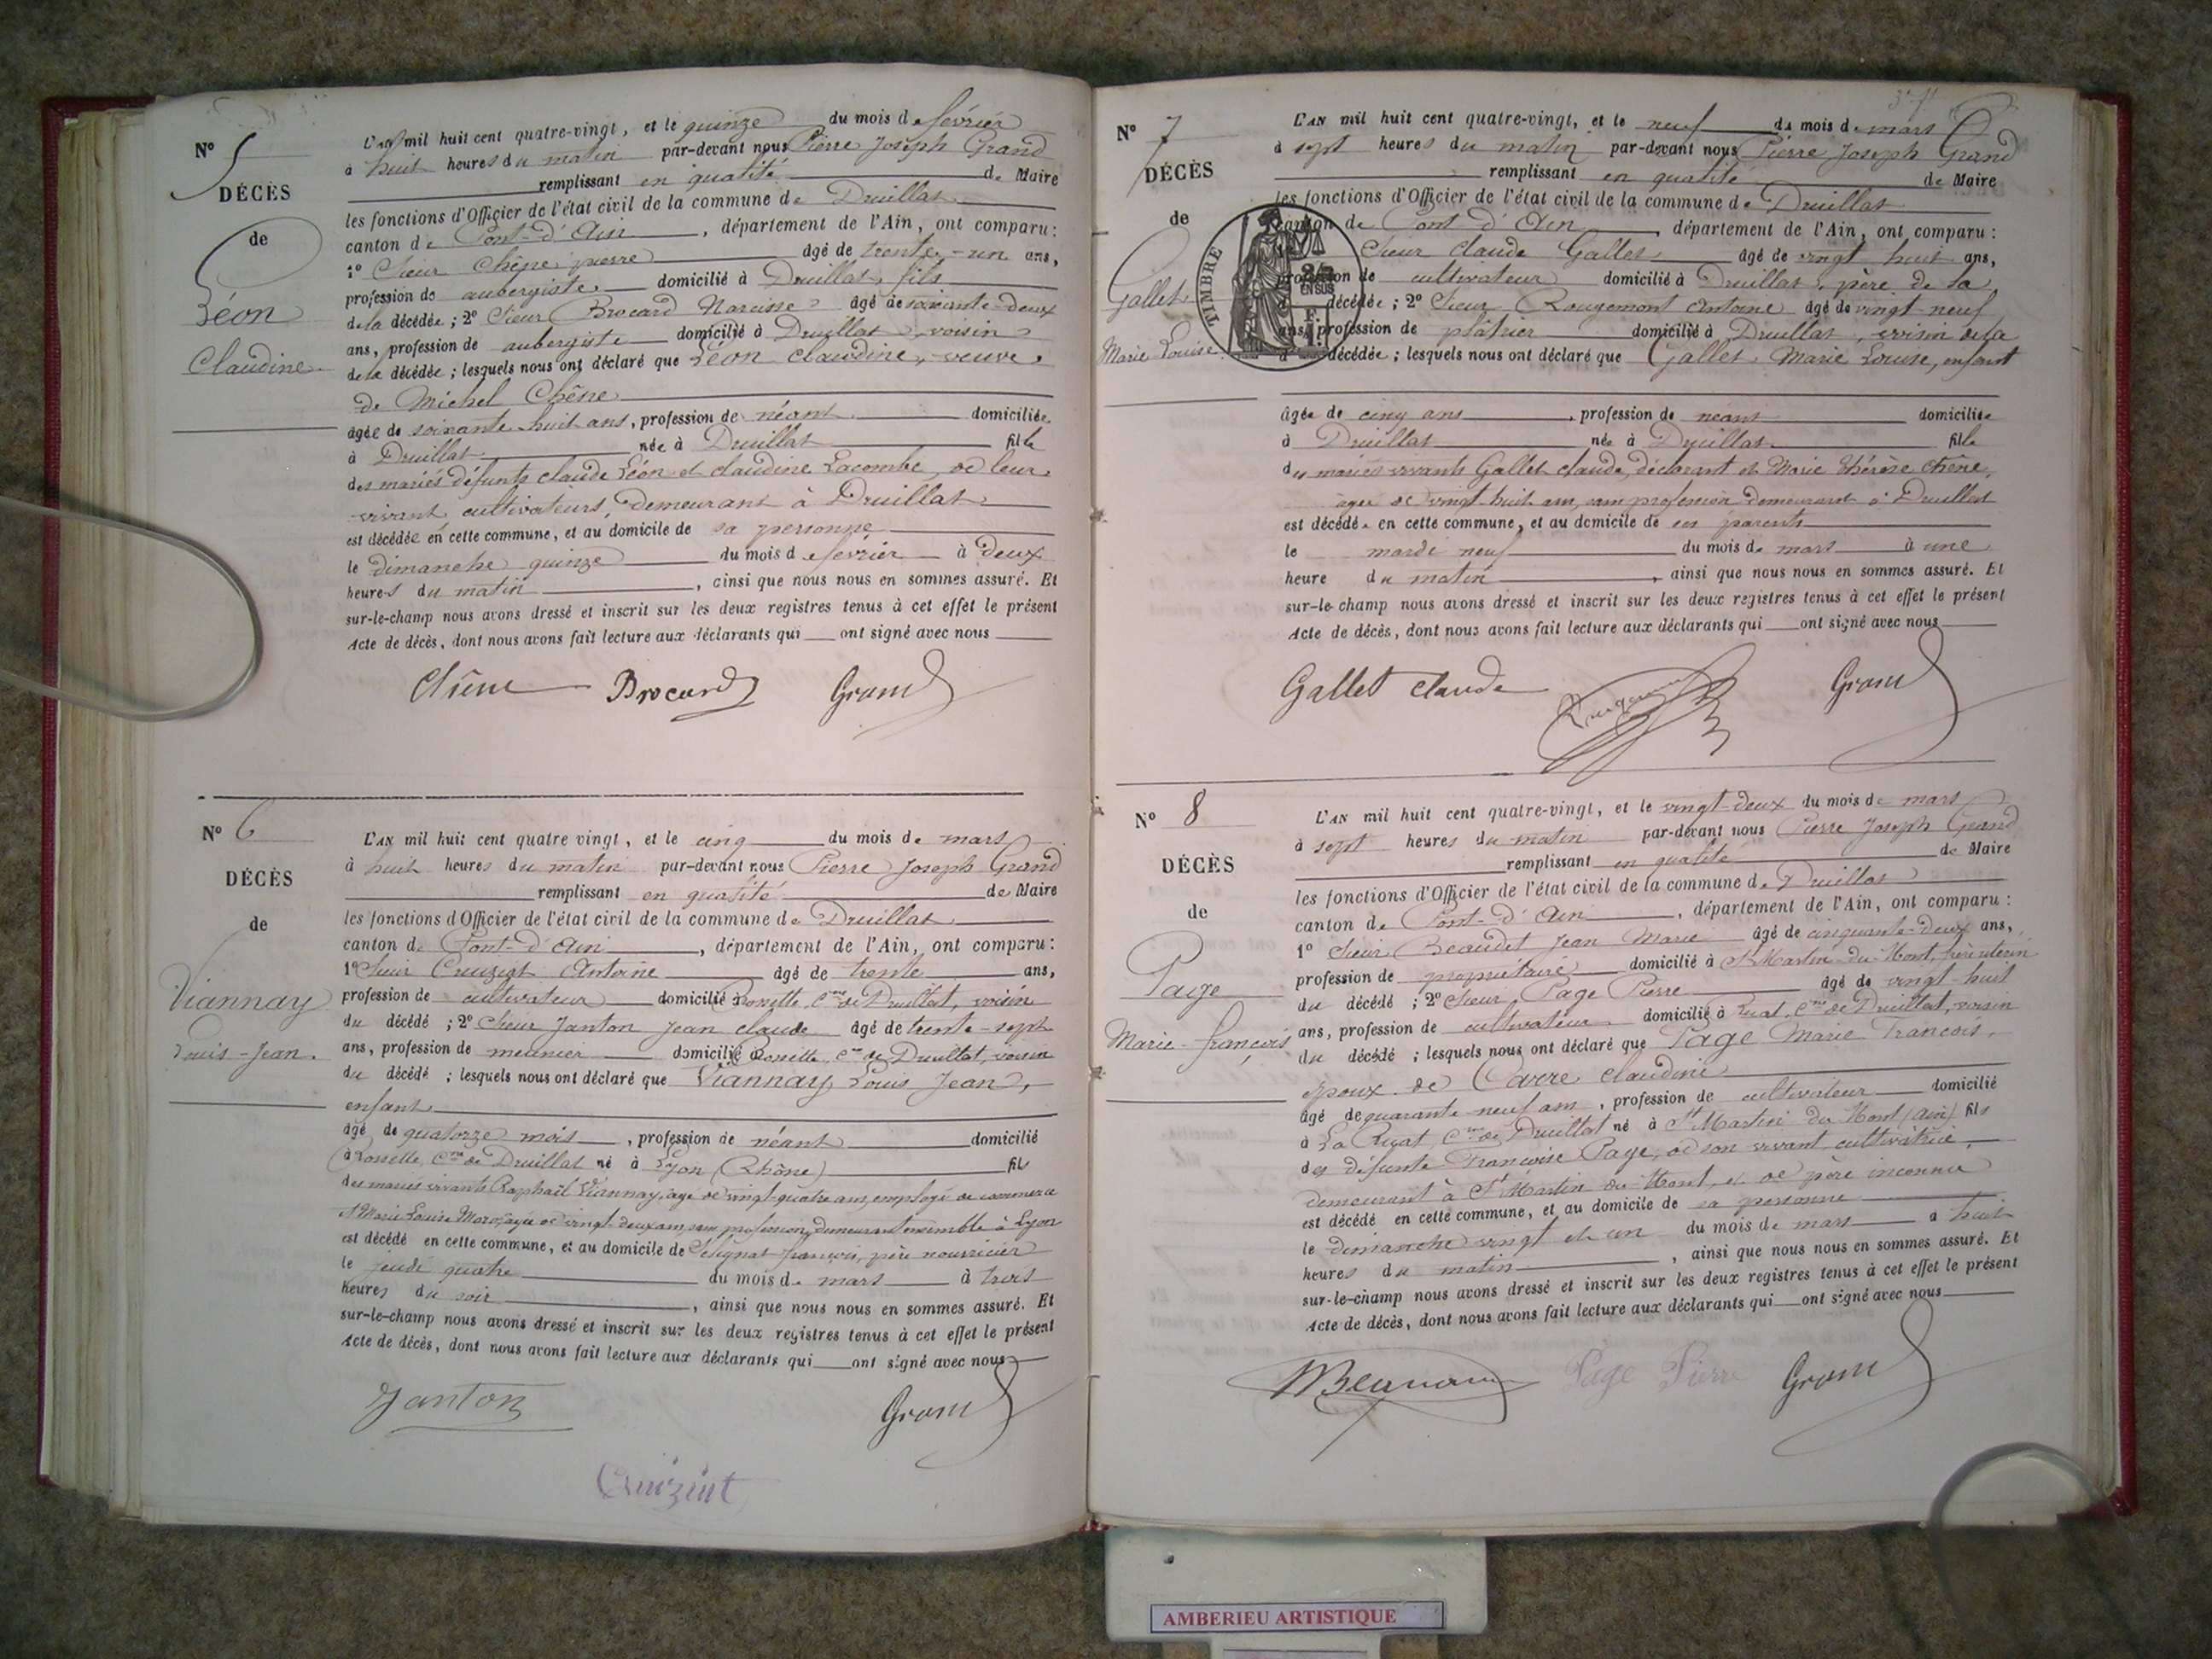 N° 5
DÉCÈS
de
Léon
Claudine
L'an mil huit cent quatre-vingt, et le quinze du mois de février
à huit heures du matin par-devant nous Pierre Joseph Grand
remplissant en qualité de Maire
les fonctions d'Officier de l'état civil de la commune de Druillat
canton de Pont-d'Ain, département de l'Ain, ont comparu :
1° Sieur Chêne pierre âgé de trente-un ans,
profession de aubergiste domicilié à Druillat, fils
de la décédée ; 2° Sieur Brocard Narcisse âgé de soixante-deux
ans, profession de aubergiste domicilié à Druillat, voisin
de la décédée ; lesquels nous ont déclaré que Léon Claudine, veuve
de Michel Chêne
âgée de soixante-huit ans, profession de néant domiciliée
à Druillat née à Druillat fille
des mariés défunts Claude Léon et Claudine Lacombe, de leur
vivant cultivateurs, demeurant à Druillat
est décédée en cette commune, et au domicile de sa personne
le dimanche quinze du mois de février à deux
heures du matin, ainsi que nous nous en sommes assuré. Et
sur-le-champ nous avons dressé et inscrit sur les deux registres tenus à cet effet le présent
Acte de décès, dont nous avons fait lecture aux déclarants qui ont signé avec nous
Chêne Brocard Grand
N° 6
DÉCÈS
de
Viannay
Louis-Jean.
L'an mil huit cent quatre vingt, et le cinq du mois de mars
à huit heures du matin par-devant nous Pierre Joseph Grand
remplissant en qualité de Maire
les fonctions d'Officier de l'état civil de la commune de Druillat
canton de Pont-d'Ain, département de l'Ain, ont comparu :
1° Sieur Creuzet Antoine âgé de trente ans,
profession de cultivateur domicilié à Rossette, Cne de Druillat, voisin
du décédé ; 2° Sieur Janton Jean Claude âgé de trente-sept
ans, profession de meunier domicilié à Rossette, Cne de Druillat, voisin
du décédé ; lesquels nous ont déclaré que Viannay Louis Jean,
enfant
âgé de quatorze mois, profession de néant domicilié
à Rossette, Cne de Druillat né à Lyon (Rhône) fils
des mariés vivants Raphaël Viannay, âgé de vingt-quatre ans, employé de commerce
et Marie Louise, âgée de vingt-deux ans, sans profession, demeurant ensemble à Lyon
est décédé en cette commune, et au domicile de françois, père nourricier
le jeudi quatre du mois de mars à trois
heures du soir, ainsi que nous nous en sommes assuré. Et
sur-le-champ nous avons dressé et inscrit sur les deux registres tenus à cet effet le présent
Acte de décès, dont nous avons fait lecture aux déclarants qui ont signé avec nous
Janton Grand
N° 7
DÉCÈS
de
Gallet
Marie Louise
TIMBRE
2/10
EN SUS
L'an mil huit cent quatre-vingt, et le neuf du mois de mars
à sept heures du matin par-devant nous Pierre Joseph Grand
remplissant en qualité de Maire
les fonctions d'Officier de l'état civil de la commune de Druillat
canton de Pont d'Ain, département de l'Ain, ont comparu :
Sieur Claude Gallet âgé de vingt huit ans,
profession de cultivateur domicilié à Druillat, père de la
décédée ; 2° Sieur Rougemont Antoine âgé de vingt-neuf
ans, profession de plâtrier domicilié à Druillat, voisin de la
décédée ; lesquels nous ont déclaré que Gallet Marie Louise, enfant
âgée de cinq ans, profession de néant domiciliée
à Druillat née à Druillat fille
des mariés vivants Gallet Claude, déclarant et Marie Thérèse Chêne,
âgée de vingt-huit ans, sans profession demeurant à Druillat
est décédée en cette commune, et au domicile de ses parents
le mardi neuf du mois de mars à une
heure du matin, ainsi que nous nous en sommes assuré. Et
sur-le-champ nous avons dressé et inscrit sur les deux registres tenus à cet effet le présent
Acte de décès, dont nous avons fait lecture aux déclarants qui ont signé avec nous
Gallet Claude Grand
N° 8
DÉCÈS
de
Page
Marie-françois
L'an mil huit cent quatre-vingt, et le vingt-deux du mois de mars
à sept heures du matin par-devant nous Pierre Joseph Grand
remplissant en qualité de Maire
les fonctions d'Officier de l'état civil de la commune de Druillat
canton de Pont-d'Ain, département de l'Ain, ont comparu :
1° Sieur Jean Marie âgé de cinquante-deux ans,
profession de propriétaire domicilié à St Martin-du-Mont, frère utérin
du décédé ; 2° Sieur Page Pierre âgé de vingt-huit
ans, profession de cultivateur domicilié à Cne de Druillat, voisin
du décédé ; lesquels nous ont déclaré que Page Marie François,
époux de Claudine
âgé de quarante-neuf ans, profession de cultivateur domicilié
à Cne de Druillat né à St Martin du Mont (Ain) fils
des défunte Françoise Page, de son vivant cultivatrice,
demeurant à St Martin du Mont, et de père inconnu
est décédé en cette commune, et au domicile de sa personne
le dimanche vingt et un du mois de mars à huit
heures du matin, ainsi que nous nous en sommes assuré. Et
sur-le-champ nous avons dressé et inscrit sur les deux registres tenus à cet effet le présent
Acte de décès, dont nous avons fait lecture aux déclarants qui ont signé avec nous
Page Pierre Grand
AMBERIEU ARTISTIQUE